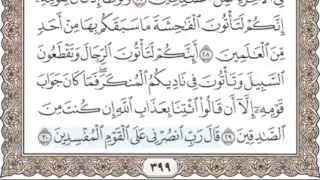 إِنَّكُمْ لَتَأْتُونَ الْفَاحِشَةَ مَا سَبَقَكُم بِهَا مِنْ أَحَدٍ
مِّنَ الْعَالَمِينَ ٢٨ أَئِنَّكُمْ لَتَأْتُونَ الرِّجَالَ وَتَقْطَعُونَ
السَّبِيلَ وَتَأْتُونَ فِي نَادِيكُمُ الْمُنكَرَ فَمَا كَانَ جَوَابَ
قَوْمِهِ إِلَّا أَن قَالُوا ائْتِنَا بِعَذَابِ اللَّهِ إِن كُنتَ مِنَ
الصَّادِقِينَ ٢٩ قَالَ رَبِّ انصُرْنِي عَلَى الْقَوْمِ الْمُفْسِدِينَ ٣٠
٣٩٩